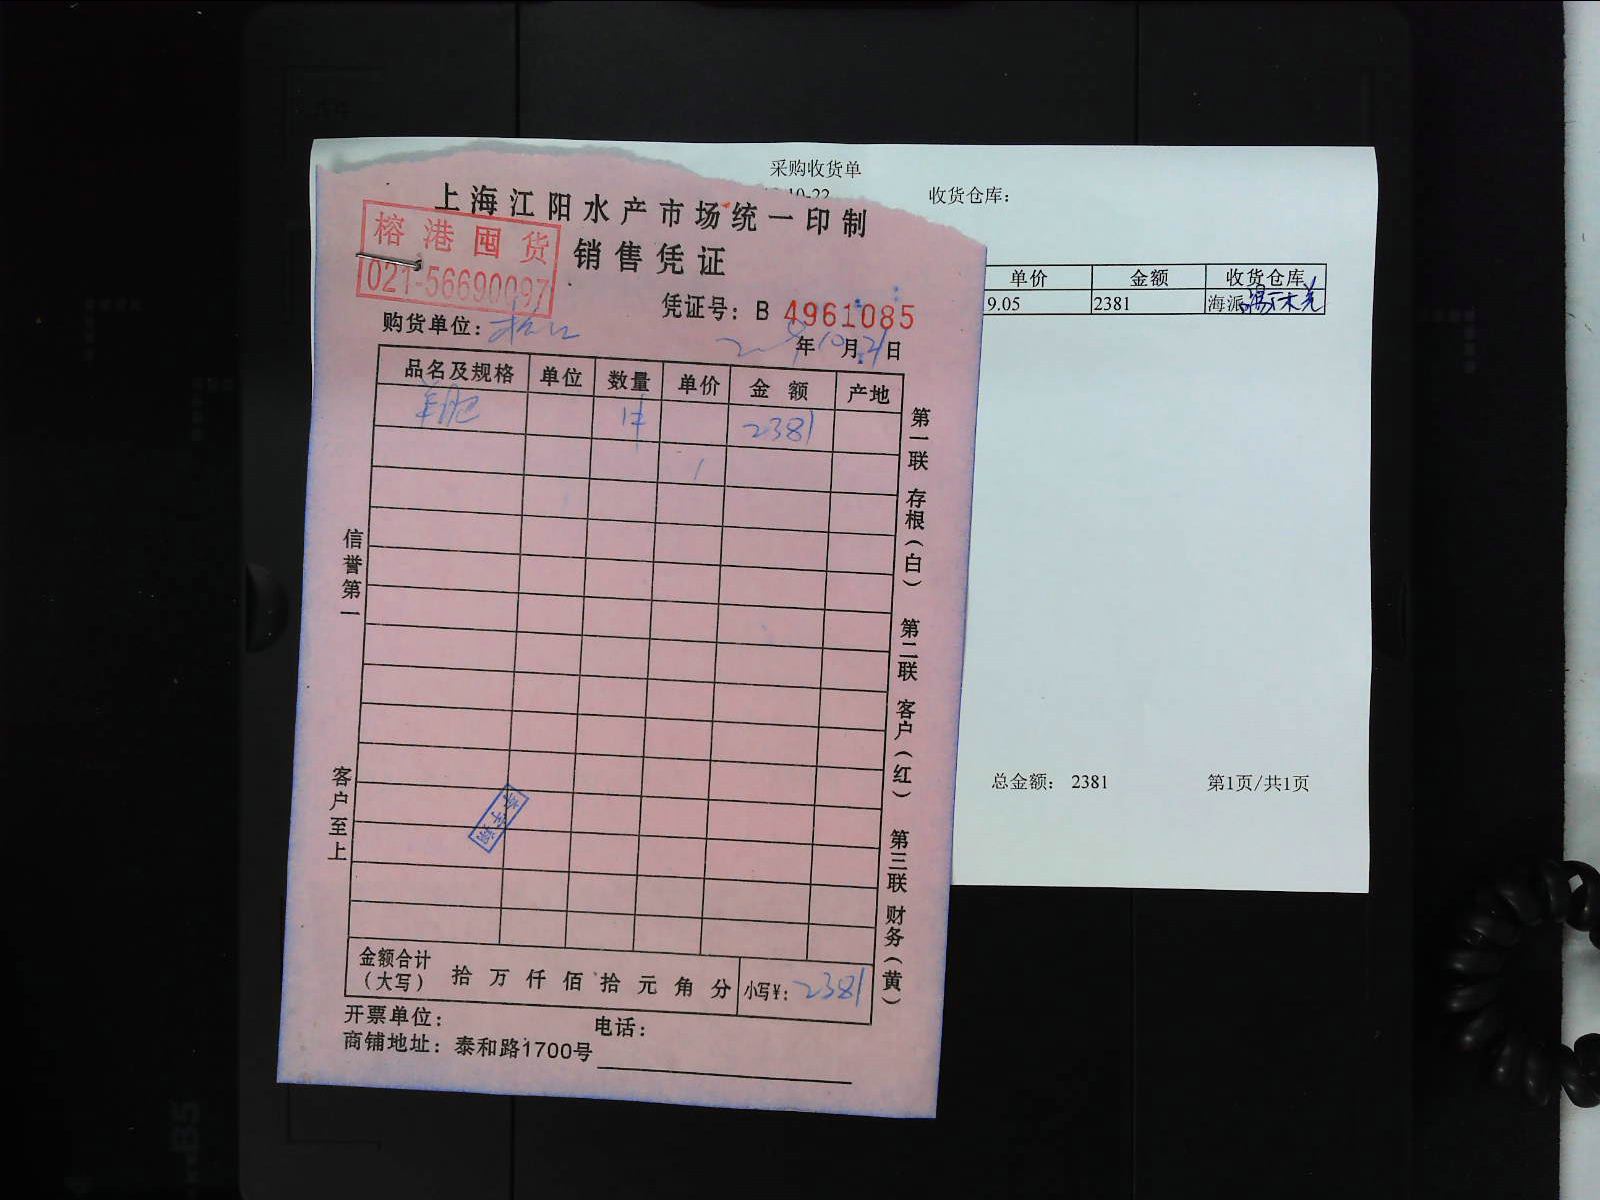 采购收货单
10-22
收货仓库：
单价 金额 收货仓库
9.05 2381 海派
总金额： 2381 第1页/共1页
上海江阳水产市场统一印制
销售凭证
榕港囤货
021-56690097
凭证号：B 4961085
购货单位：
年10月21日
品名及规格 单位 数量 单价 金额 产地
1件 2381
信誉第一
客户至上
第一联 存根（白） 第二联 客户（红） 第三联 财务（黄）
金额合计（大写） 拾万仟佰拾元角分 小写¥：2381
开票单位： 电话：
商铺地址：泰和路1700号